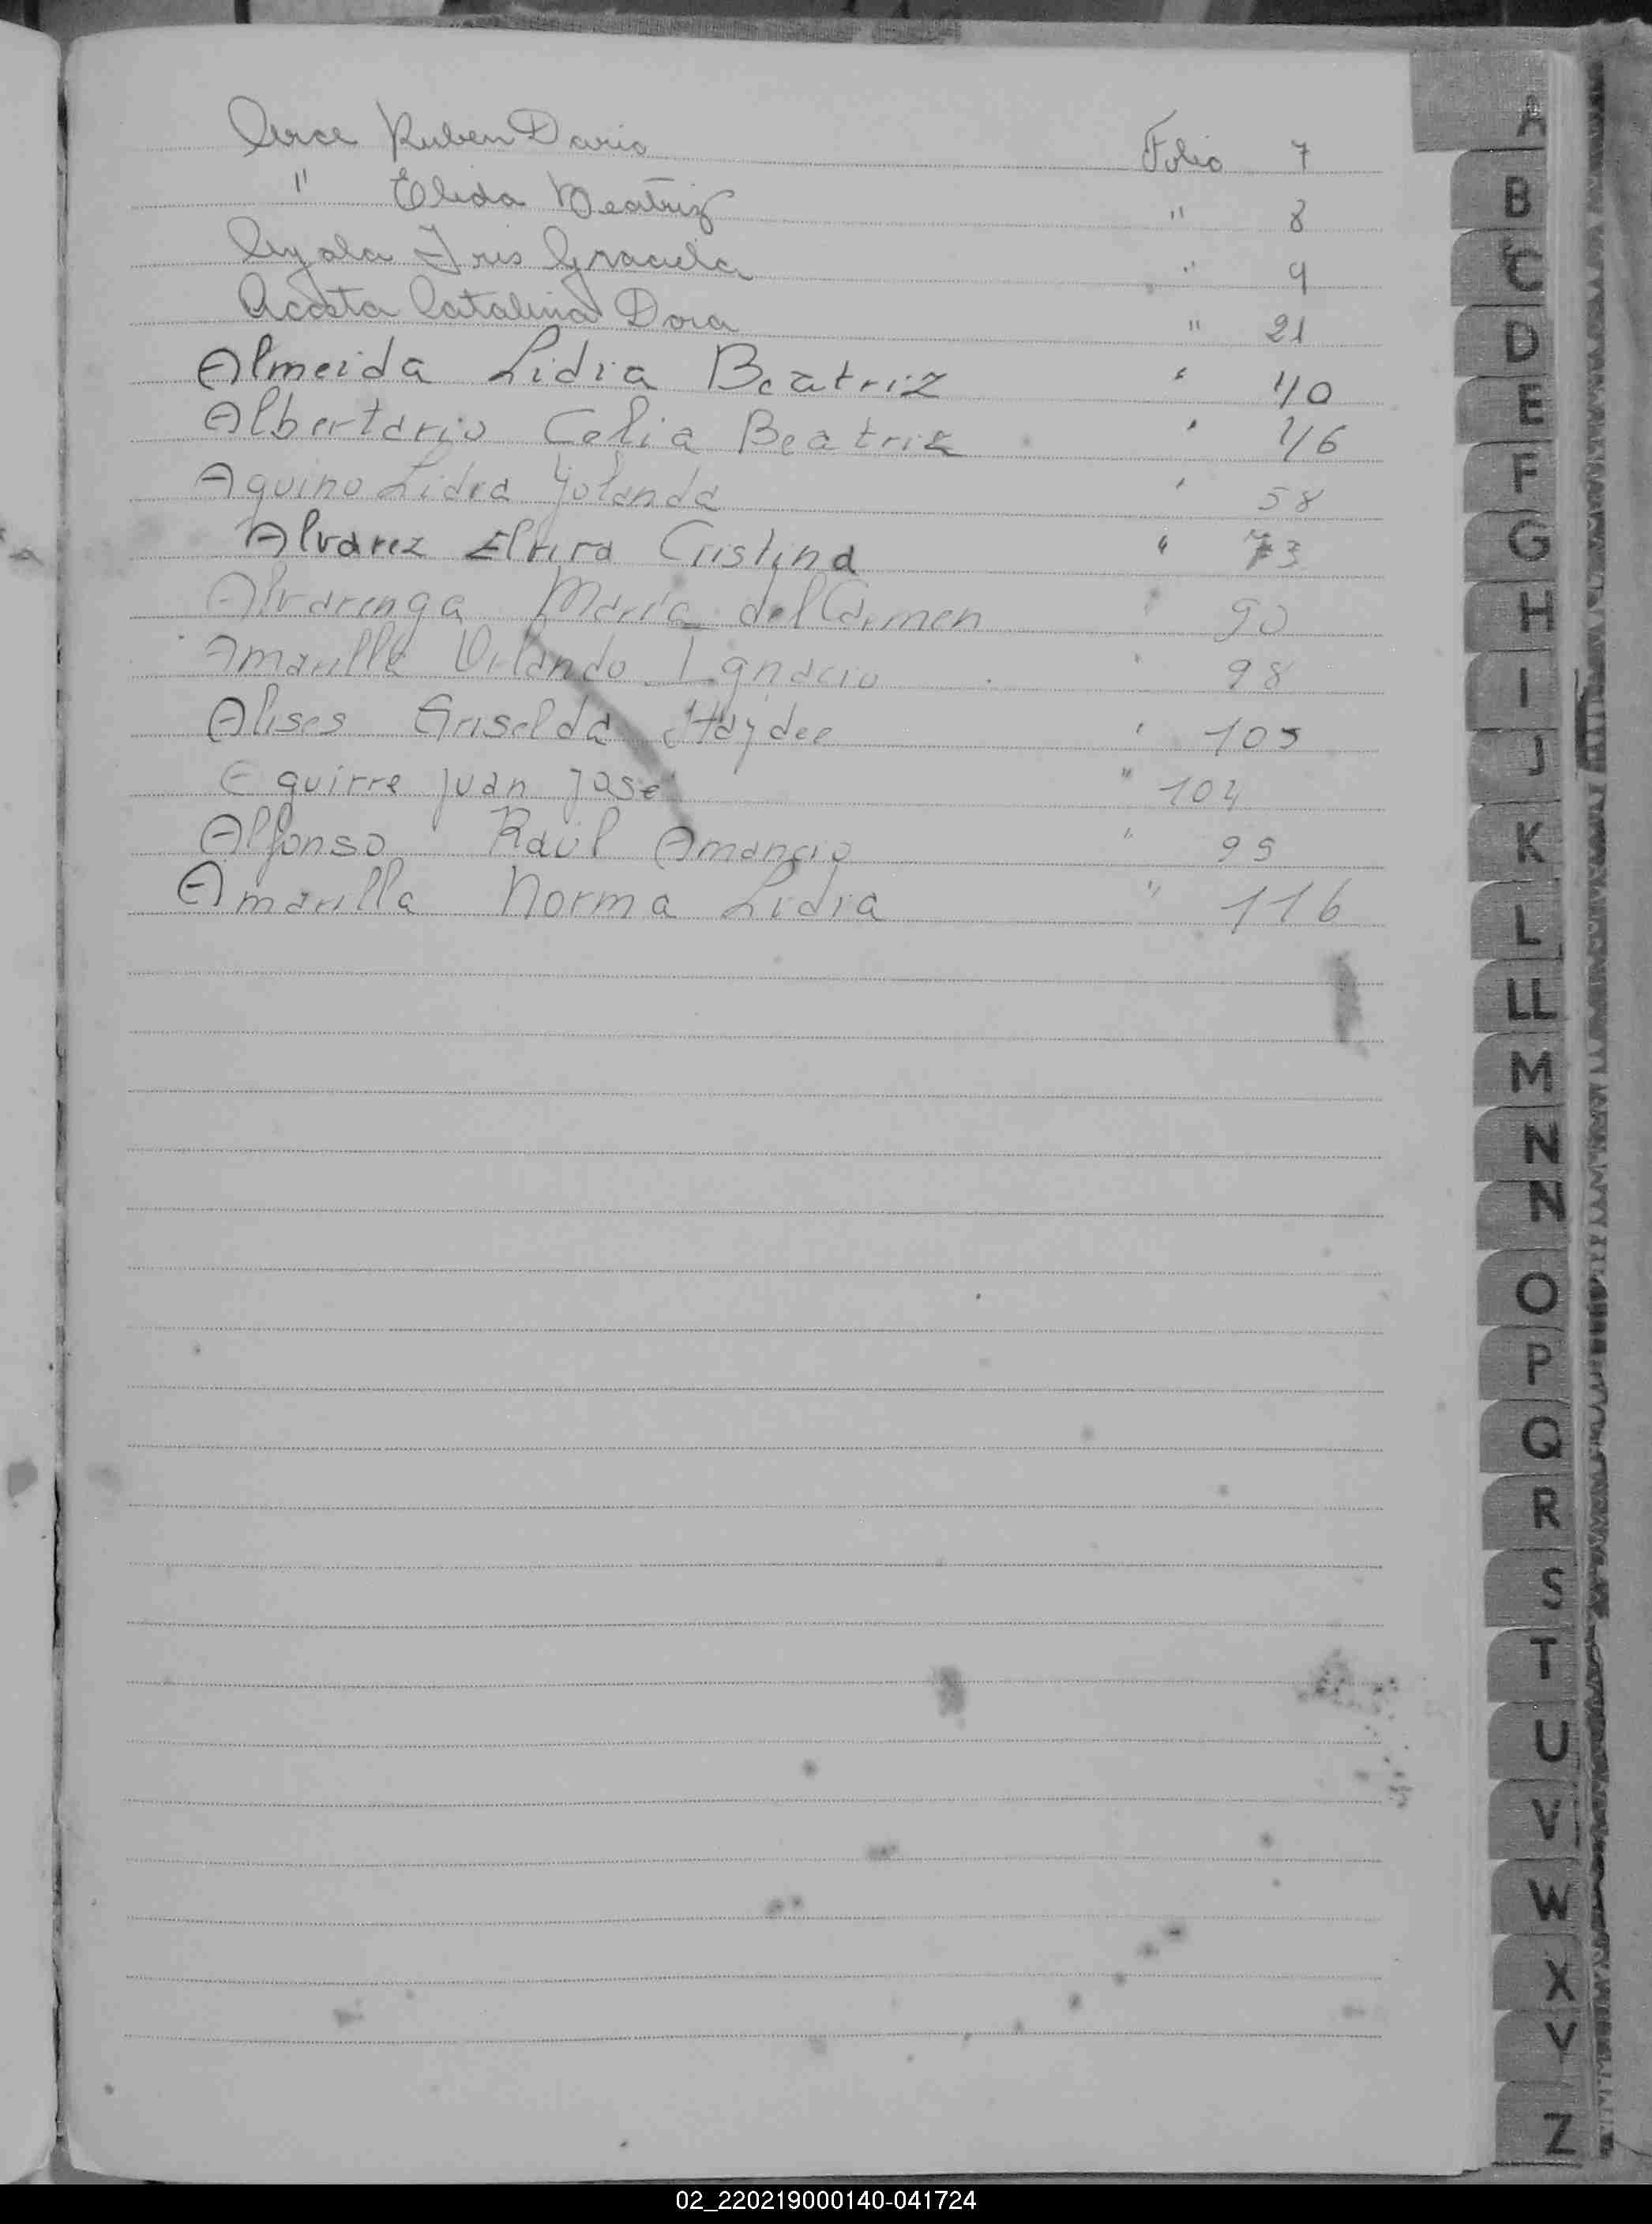 Arce Ruben Dario Folio 7
" Elida Beatriz " 8
Ayala Iris Graciela " 9
Acosta Catalina Dora " 21
Almeida Lidia Beatriz " 40
Albertario Celia Beatriz " 46
Aquino Lidia Yolanda " 58
Alvarez Elvira Cristina " 73
Alvarenga María del Carmen " 90
Amarilla Orlando Ignacio " 98
Alises Griselda Haydee " 105
Eguirre Juan José " 104
Alfonso Raúl Amancio " 99
Amarilla Norma Lidia " 116
A
B
C
D
E
F
G
H
I
J
K
L
LL
M
N
N
O
P
Q
R
S
T
U
V
W
X
Y
Z
02_220219000140-041724